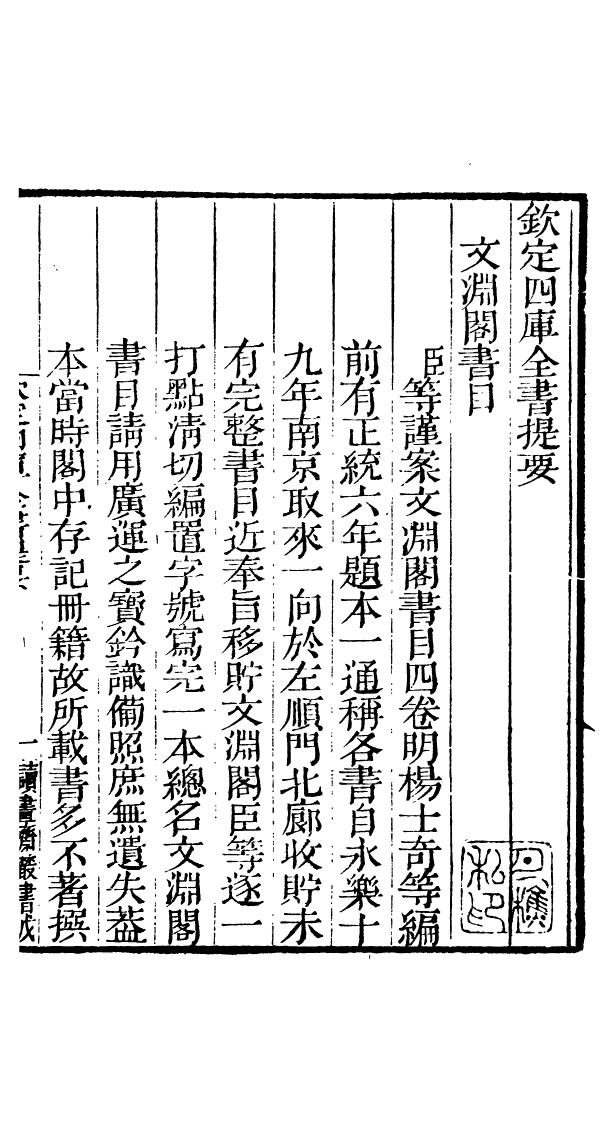 欽定四庫全書提要
文淵閣書目
臣等謹案文淵閣書目四卷明楊士奇等編
前有正統六年題本一通稱各書自永樂十
九年南京取來一向於左順門北廊收貯未
有完整書目近奉旨移貯文淵閣臣等逐一
打點淸切編置字號寫完一本總名文淵閣
書目請用廣運之寶鈐識備照庶無遺失葢
本當時閣中存記冊籍故所載書多不著撰
一 讀書齋叢書戊